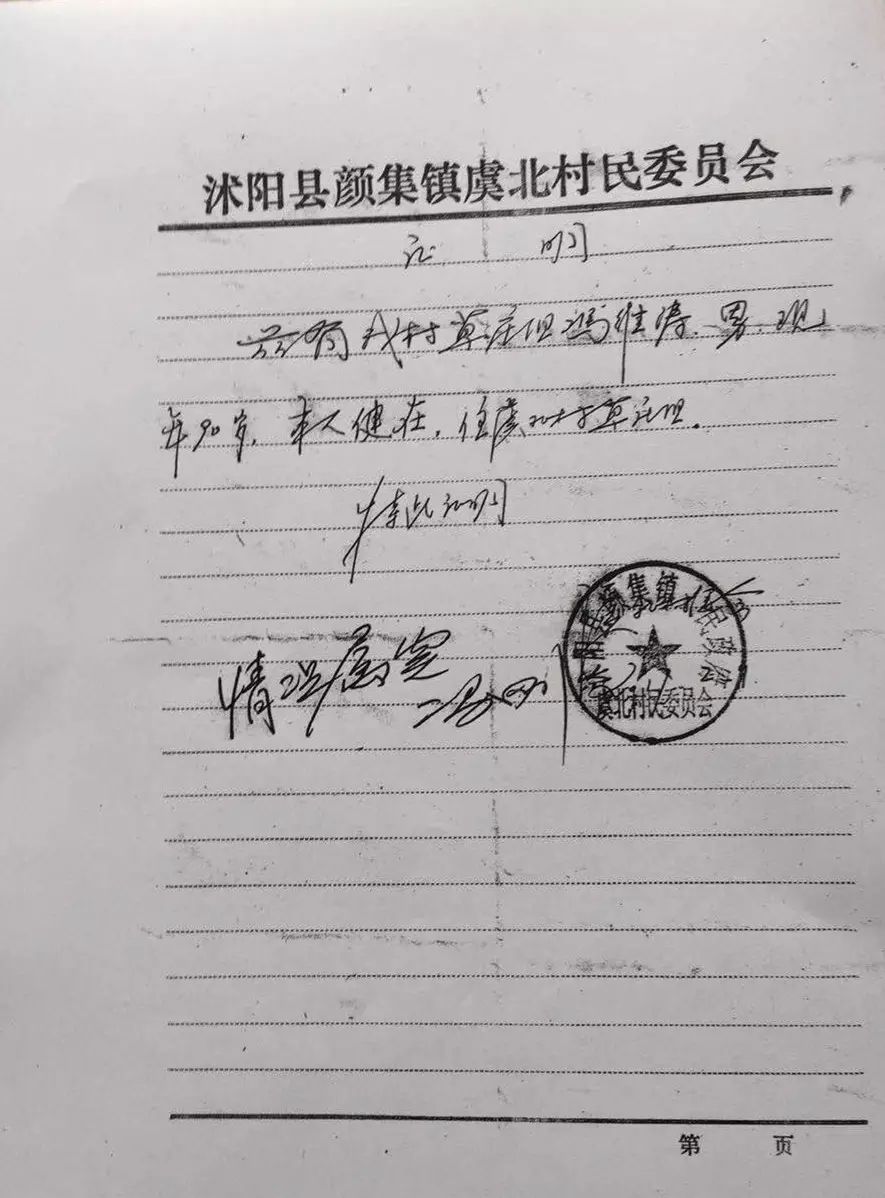 沭阳县颜集镇虞北村民委员会
证 明
兹有我村草庄组冯维涛、男、现
年90岁，本人健在，住虞北村草庄组。
特此证明
情况属实
颜集镇人民政府
虞北村民委员会
第 页